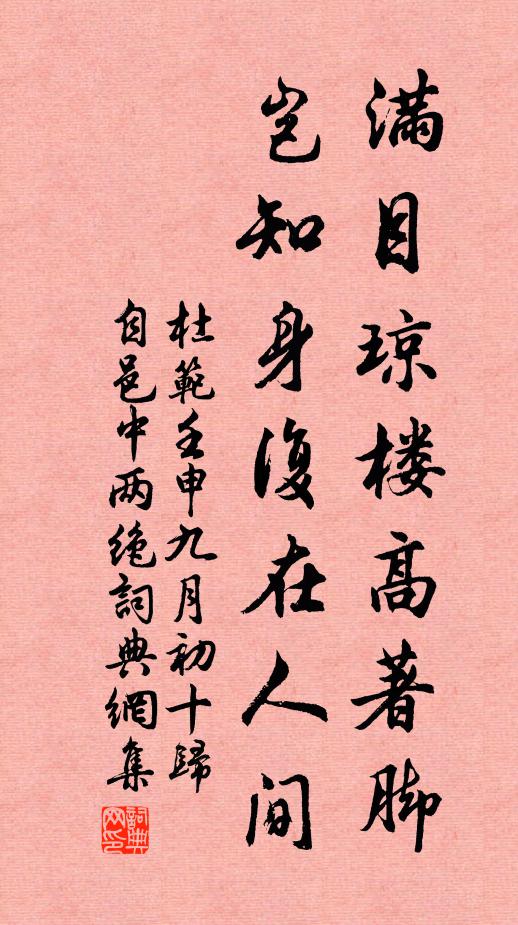 满目琼楼高著脚
岂知身復在人间
杜範壬申九月初十歸
自邑中两绝詞典網集
詞典网印